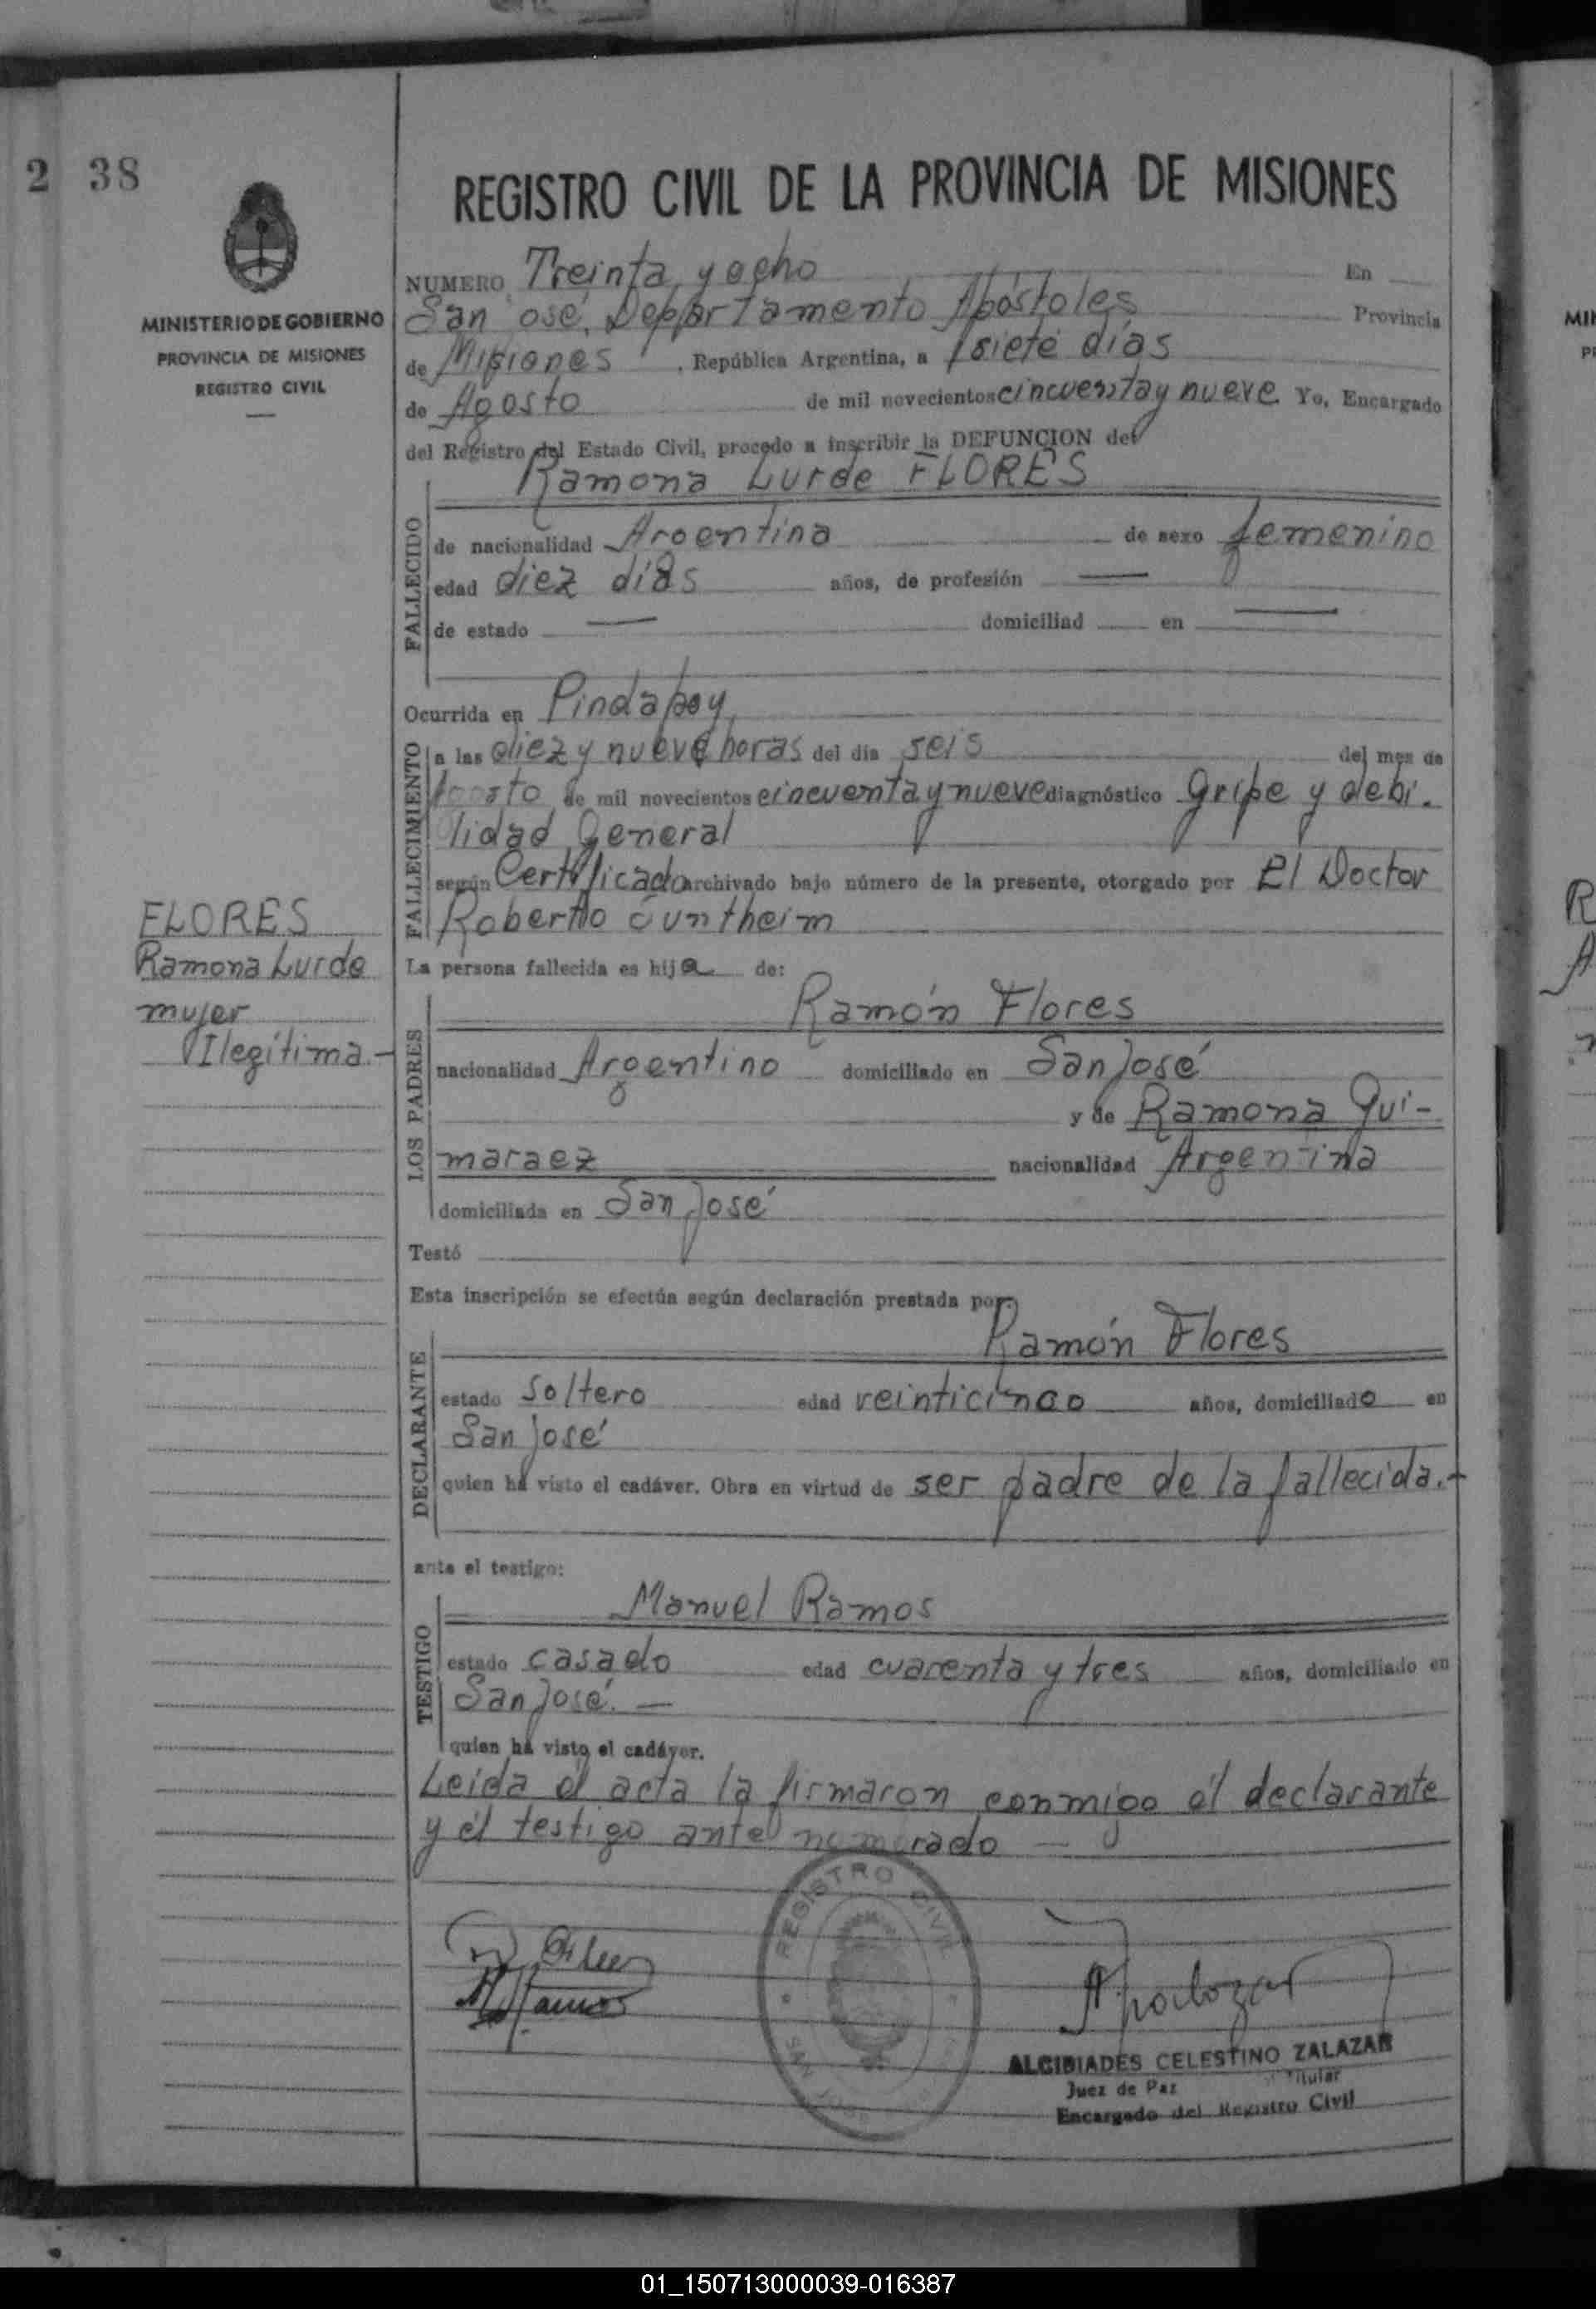 2 38
MINISTERIO DE GOBIERNO
PROVINCIA DE MISIONES
REGISTRO CIVIL
FLORES
Ramona Lurde
mujer
Ilegítima.-
REGISTRO CIVIL DE LA PROVINCIA DE MISIONES
NUMERO Treinta y ocho En
San José, Departamento Apóstoles Provincia
de Misiones, República Argentina, a siete días
de Agosto de mil novecientos cincuenta y nueve Yo, Encargado
del Registro del Estado Civil, procedo a inscribir la DEFUNCION de
Ramona Lurde FLORES
FALLECIDO
de nacionalidad Argentina de sexo femenino
edad diez días años, de profesión —
de estado — domiciliad en —
Ocurrida en Pindapoy,
FALLECIMIENTO
a las diez y nueve horas del día seis del mes de
Agosto de mil novecientos cincuenta y nueve diagnóstico gripe y debi-
lidad General
según Certificado archivado bajo número de la presente, otorgado por El Doctor
Roberto
La persona fallecida es hija de:
LOS PADRES
Ramón Flores
nacionalidad Argentino domiciliado en San José
y de Ramona Gui-
maraez nacionalidad Argentina
domiciliada en San José
Testó
Esta inscripción se efectúa según declaración prestada por:
DECLARANTE
Ramón Flores
estado soltero edad veinticinco años, domiciliado en
San José
quien ha visto el cadáver. Obra en virtud de ser padre de la fallecida.-
ante el testigo:
TESTIGO
Manuel Ramos
estado casado edad cuarenta y tres años, domiciliado en
San José. —
quien ha visto el cadáver.
Leida el acta la firmaron conmigo él declarante
y él testigo ante nomorado —
REGISTRO CIVIL
SAN JOSE
ALCIBIADES CELESTINO ZALAZAR
Juez de Paz Titular
Encargado del Registro Civil
01_150713000039-016387